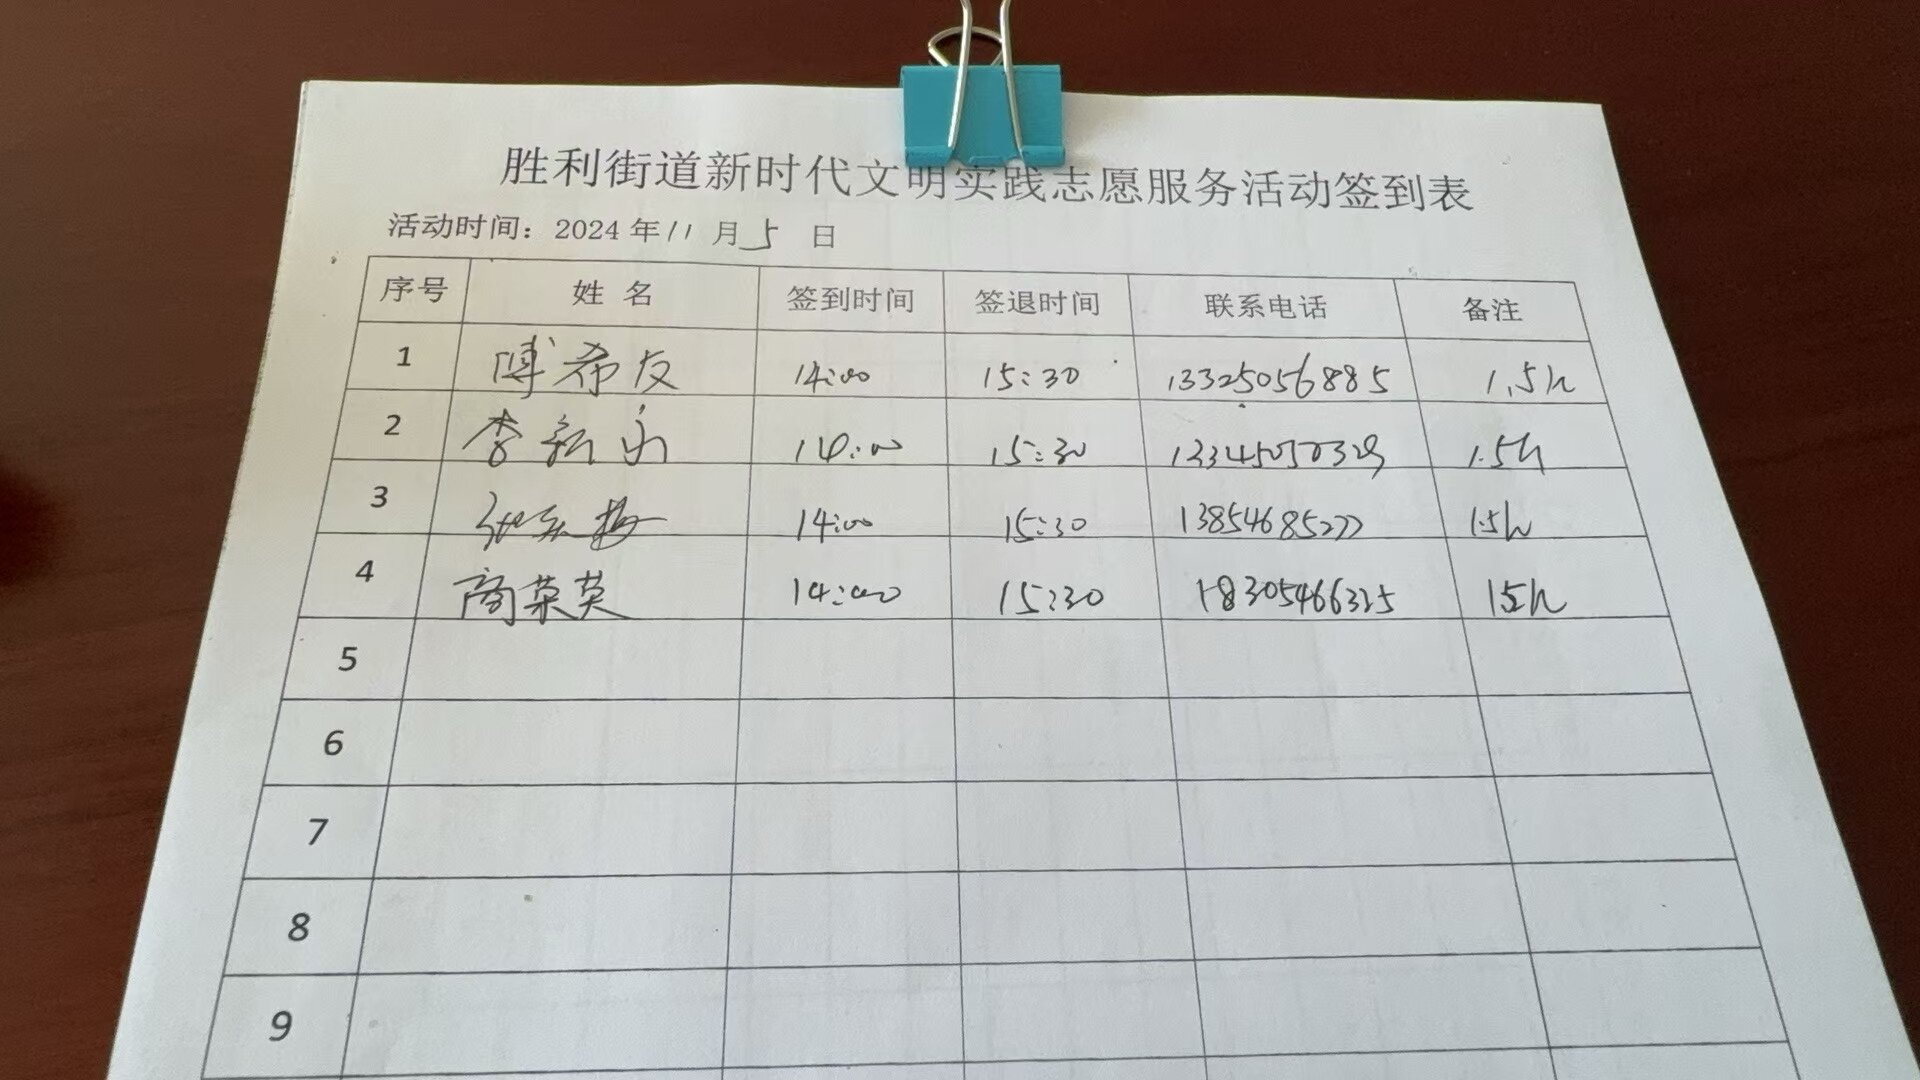 胜利街道新时代文明实践志愿服务活动签到表
活动时间：2024 年 11 月 5 日
序号 姓 名 签到时间 签退时间 联系电话 备注
1 傅希友 14:00 15:30 13325056885 1.5h
2 李新 14:00 15:30 1.5h
3 张 梅 14:00 15:30 13854685277 1.5h
4 商荣英 14:00 15:30 18305466325 1.5h
5
6
7
8
9